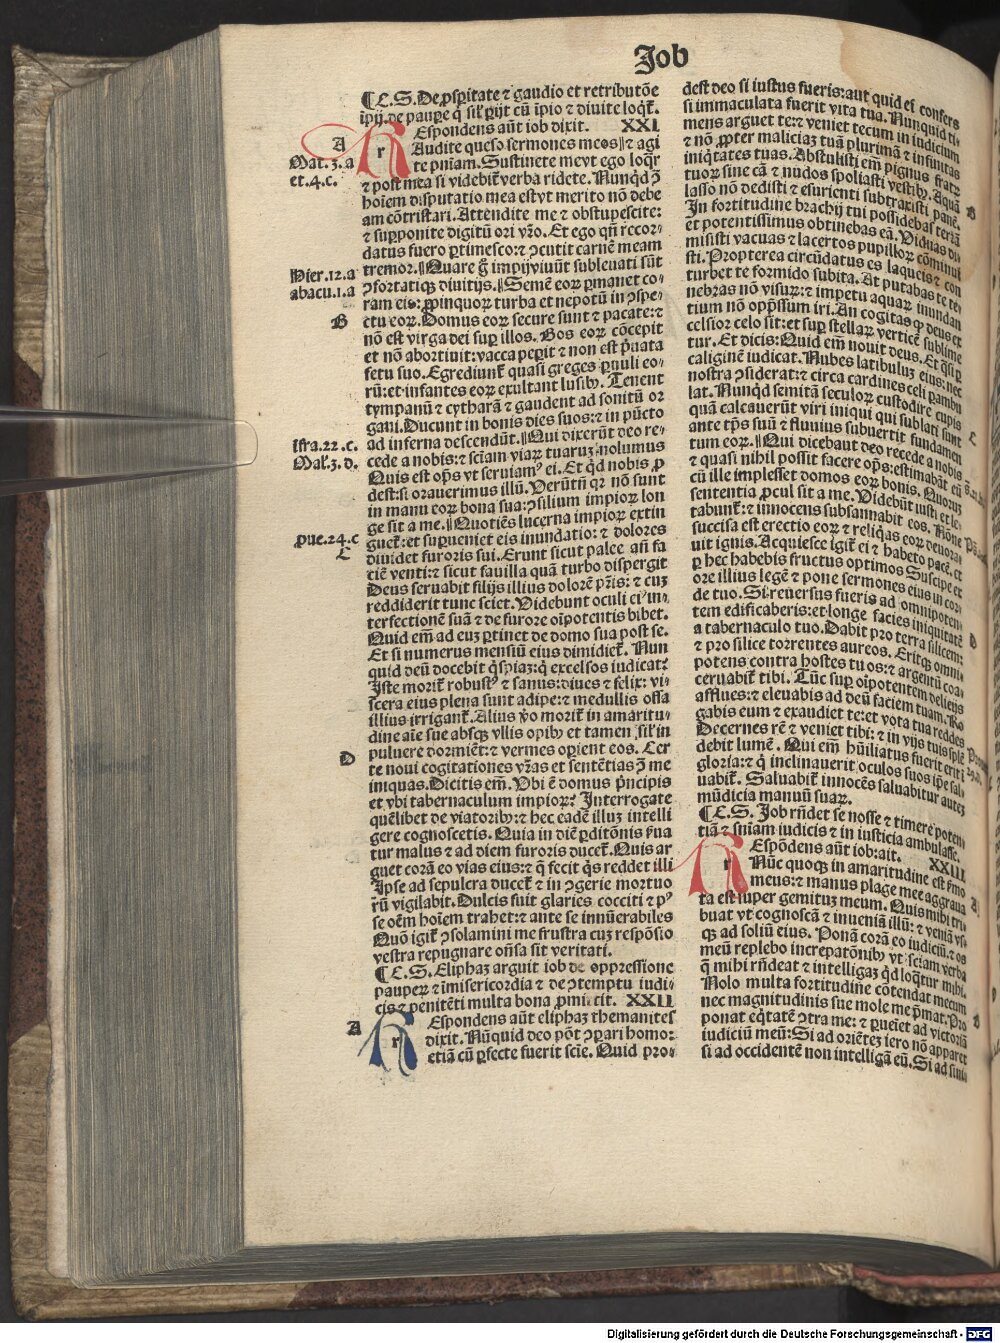 Job
¶ C.S. De ꝓsp̄itate ⁊ gaudio et retributōe
ip̄ij.de paupe q̄ sil̓ ꝑijt cū īpio ⁊ diuite loqt̄.
Espondens aūt iob dixit. XXI
A
r
Audite queso sermones meos‖⁊ agi
Mat.3.a
et.4.c.
te pn̄iam.Sustinete me vt ego loq̄r
⁊ post mea si videbit̄ verba ridete. Nunqd ꝯ̄
hoīem disputatio mea est vt merito nō debe
am cōtristari.Attendite me ⁊ obstupescite:
⁊ suꝑponite digitū ori vr̄o. Et ego qn̄ recor⸗
datus fuero ꝑtimesco:⁊ ꝯcutit carnē meam
Hier.12.a
tremor.‖Quare g̃ impij viuūt subleuati sūt
abacu.1.a
ꝯfortatiqꝫ diuitijs.‖Semē eoꝝ ꝑmanet co⸗
ram eis: ꝓpinquoꝝ turba et nepotū in ꝯspe⸗
B
ctu eoꝝ.Domus eoꝝ secure sunt ⁊ pacate:⁊
nō est virga dei suꝑ illos. Bos eoꝝ cōcepit
et nō abortiuit: vacca peꝑit ⁊ non est ṗuata
fetu suo. Egrediunt̄ quasi greges ꝑuuli eo⸗
rū:et infantes eoꝝ exultant lusibꝫ. Tenent
tympanū ⁊ cytharā ⁊ gaudent ad sonitū or
gani.Ducunt in bonis dies suos:⁊ in pūcto
Ifra.22.c.
ad inferna descendūt.‖Qui dixerūt deo re⸗
Mal.3.d.
cede a nobis:⁊ sciam viaꝝ tuaruꝫ nolumus
Quis est op̄s vt seruiamꝰ ei. Et qd nobis ꝓ
dest:si orauerimus illū.Verūtn̄ qꝛ nō sunt
in manu eoꝝ bona sua:ꝯsilium impioꝝ lon
ge sit a me.‖Quotiēs lucerna impioꝝ extin
ꝓue.24.c
guet̄:et suꝑueniet eis inundatio: ⁊ dolores
C
diuidet furoris sui.Erunt sicut palee añ fa
ciē venti:⁊ sicut fauilla quā turbo dispergit
Deus seruabit filijs illius dolorē pr̄is: ⁊ cuꝫ
reddiderit tunc sciet.Videbunt oculi ei' in⸗
terfectionē suā ⁊ de furore oīpotentis bibet.
Quid em̄ ad euꝫ ꝑtinet de domo sua post se.
Et si numerus mensiū eius dimidiet̄. Nun
quid deū docebit q̄spiaꝫ:q̄ excelsos iudicat?
Iste morit̄ robustꝰ ⁊ sanus:diues ⁊ felix: vi⸗
scera eius plena sunt adipe:⁊ medullis ossa
illius irrigant̄. Alius v̄o morit̄ in amaritu⸗
dine aīe sue absqꝫ vllis opibꝫ et tamen sil̓ in
D
puluere dormiēt:⁊ vermes oꝑient eos. Cer
te noui cogitationes vr̄as et sentētias ꝯ̄ me
iniquas.Dicitis em̄. Vbi ē domus ṗncipis
et vbi tabernaculum impioꝝ? Interrogate
quēlibet de viatoribꝫ:⁊ hec eadē illuꝫ intelli
gere cognoscetis. Quia in diē ꝑditōnis ẛua
tur malus ⁊ ad diem furoris ducet̄. Quis ar
guet corā eo vias eius:⁊ q̄ fecit q̄s reddet illi
Ipse ad sepulcra ducet̄ ⁊ in ꝯgerie mortuo
rū vigilabit. Dulcis fuit glaries cocciti ⁊ pꝰ
se oēm hoīem trahet:⁊ ante se innūerabiles
Quō igit̄ ꝯsolamini me frustra cuꝫ respōsio
vestra repugnare on̄sa sit veritati.
¶ C.S. Eliphaꝫ arguit iob de oppressione
pauꝑeꝝ ⁊ īmisericordia ⁊ de ꝯtemptu iudi⸗
cis ⁊ penitēti multa bona ꝓmittit. XXII
A
Espondens aūt eliphaꝫ themanites
r
dixit. Nūquid deo pōt ꝯpari homo:
etiā cū ꝑfecte fuerit scīe. Quid pro⸗
dest deo si iustus fueris:aut quid ei confers
si immaculata fuerit vita tua. Nunquid ti⸗
mens arguet te:⁊ veniet tecum in iudicium
⁊ nō ꝓpter maliciaꝫ tuā plurimā ⁊ infinitas
iniqtates tuas. Abstulisti em̄ pignus fratꝝ
tuoꝝ sine cā ⁊ nudos spoliasti vestibꝫ. Aquā
lasso nō dedisti ⁊ esurienti subtraxisti panē.
B
In fortitudine brachij tui possidebas terrā
et potentissimus obtinebas eā. Viduas di⸗
misisti vacuas ⁊ lacertos pupilloꝝ cōminui
sti. Propterea circūdatus es laqueis ⁊ con
turbet te formido subita. At putabas te te⸗
nebras nō visuꝝ:⁊ impetu aquaꝝ inundan
tium nō opp̄ssum iri. An cogitas ꝙ deus ex
celsior celo sit:et suꝑ stellaꝝ verticē sublime
tur. Et dicis:Quid em̄ nouit deus. Et q̄si ꝑ
caliginē iudicat. Nubes latibuluꝫ eius:nec
nostra ꝯsiderat:⁊ circa cardines celi ꝑambu
lat. Nunqd semitā seculoꝝ custodire cupis
quā calcauerūt viri iniqui qui sublati sunt
C
ante tp̄s suū ⁊ fluuius subuertit fundamen
tum eoꝝ.‖Qui dicebant deo recede a nobis
⁊ quasi nihil possit facere op̄s:estimabāt eū
cū ille implesset domos eoꝝ bonis. Quoruꝫ
sententia ꝓcul sit a me. Videbūt iusti et le⸗
tabunt̄:⁊ innocens subsannabit eos. Nōne
succisa est erectio eoꝝ ⁊ reliqas eoꝝ deuora⸗
uit ignis. Acquiesce igit̄ ei ⁊ habeto pacē. et
ꝑ hec habebis fructus optimos Suscipe ex
ore illius legē ⁊ pone sermones eius in cor⸗
de tuo. Si reuersus fueris ad omnipoten⸗
tem edificaberis:et longe facies iniquitatē
D
a tabernaculo tuo. Dabit pro terra silicem:
⁊ pro silice torrentes aureos. Eritqꝫ omni⸗
potens contra hostes tuos:⁊ argentū coa⸗
ceruabit̄ tibi. Tūc suꝑ oīpotentem delicijs
afflues:⁊ eleuabis ad deū faciem tuam. Ro
gabis eum ⁊ exaudiet te:et vota tua reddes
Decernes rē ⁊ veniet tibi:⁊ in vijs tuis splē
debit lumē. Qui em̄ hūiliatus fuerit erit ī
gloria:⁊ q̄ inclinauerit oculos suos ip̄e sal⸗
uabit̄. Saluabit̄ innocēs saluabitur auteꝫ
mūdicia manuū suaꝝ.
¶ C.S. Job rn̄det se nosse ⁊ timere poten
tiā ⁊ sn̄iam iudicis ⁊ in iusticia ambulasse.
Espōdens aūt iob:ait. XXIII
r
Nūc quoqꝫ in amaritudine est ẛmo
A
meus:⁊ manus plage mee aggraua
ta est super gemituꝫ meum. Quis mihi tri⸗
buat vt cognoscā ⁊ inueniā illū:⁊ veniā vs⸗
qꝫ ad soliū eius. Ponā corā eo iudiciū.⁊ os
meū replebo increpatōnibꝫ vt sciam verba
q̄ mihi rn̄deat ⁊ intelligaꝫ qd loqtur mihi.
Nolo multa fortitudine cōtendat mecum
nec magnitudinis sue mole me p̄mat. Pro
B
ponat eqtatē ꝯtra me: ⁊ ꝑueiet ad victoriā
iudiciū meū: Si ad oriēteꝫ iero nō apparet
si ad occidentē non intelligā eū. Si ad sini⸗
Digitalisierung gefördert durch die Deutsche Forschungsgemeinschaft - DFG